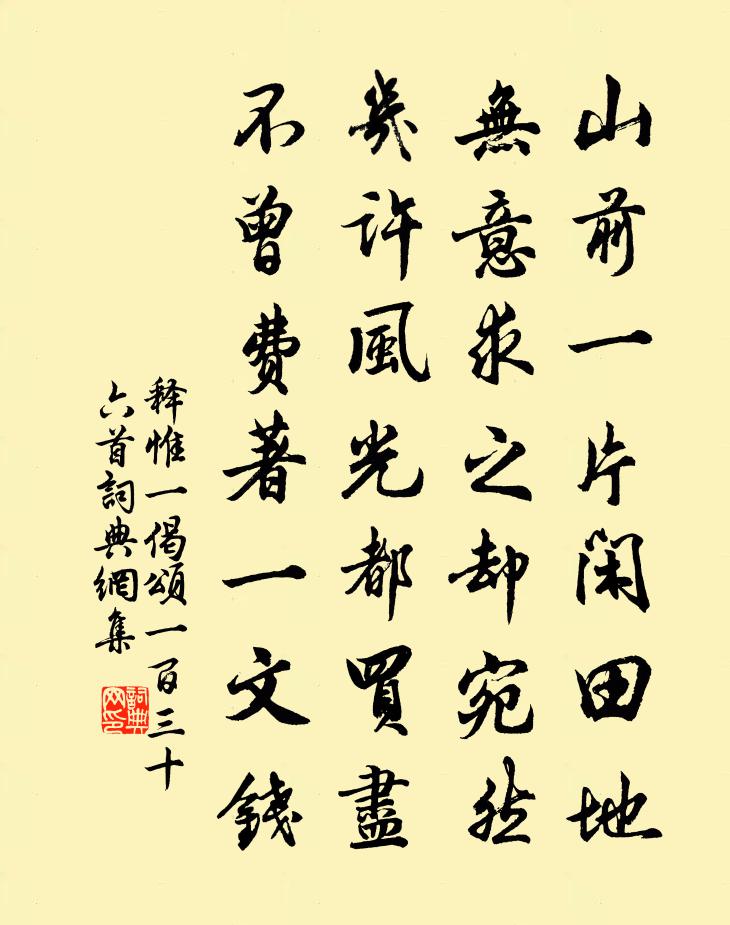 山前一片閑田地
無意求之却宛然
幾許風光都買盡
不曾費著一文錢
释惟一偈頌一百三十
六首詞典網集
詞典网印